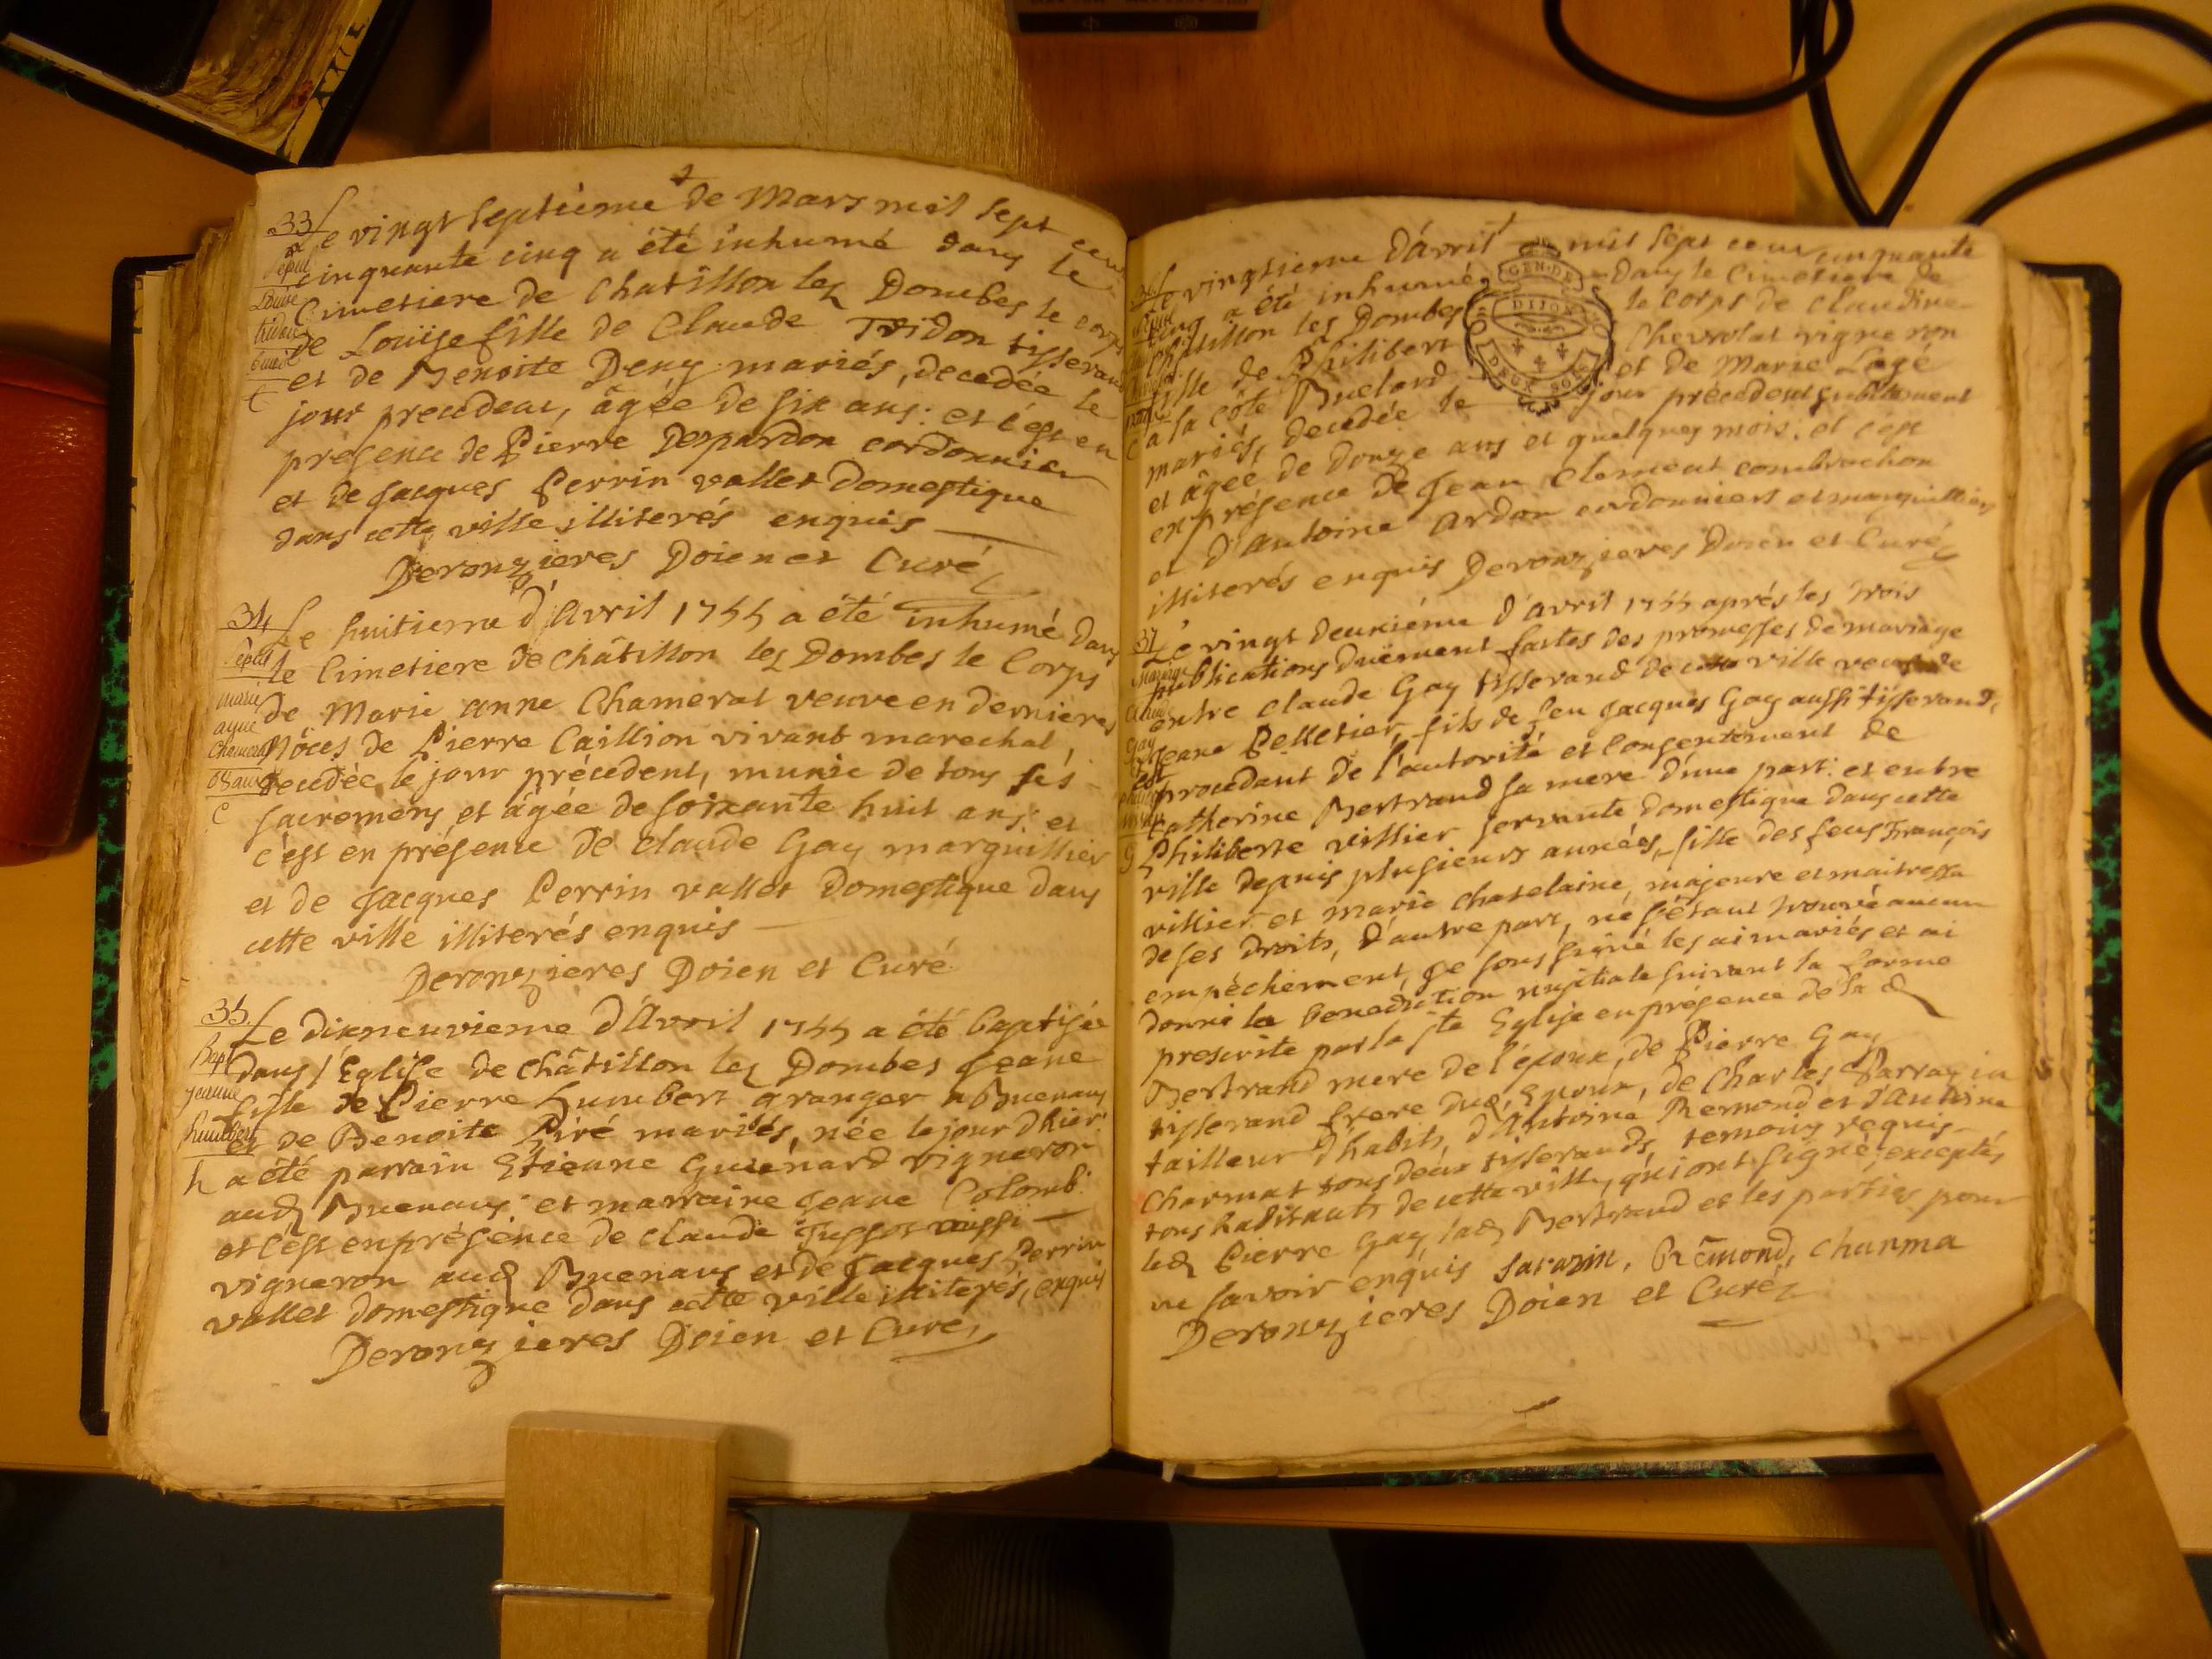 33
Le vingt septième de Mars mil sept cent
cinquante cinq a été inhumé dans le
Cimetiere de Chatillon les Dombes le corps
de Louïse fille de Claude Tridon tisserand
et de Benoite Deny mariés, decedée le
jour precedent, âgée de six ans: et c'est en
presence de Pierre Despardon cordonnier
et de Jacques Perrin vallet domestique
dans cette ville illiterés enquis
Deronzieres Doien et Curé
34
Sépult
marie
anne
Chameral
68 ans
C
Le huitieme d'Avril 1755 a été inhumé dans
le Cimetiere de Châtillon les Dombes le Corps
de Marie anne Chameral veuve en dernieres
Nôces de Pierre Caillion vivant marechal,
decedée le jour précedent, munie de tous sés
sacremens et âgée de soixante huit ans: et
c'est en présence de claude Gay marguillier
et de Jacques Perrin vallet domestique dans
cette ville illiterés enquis
Deronzieres Doien et Curé
35.
Bapt
jeanne
humbert
h
Le dixneuvieme d'Avril 1755 a été baptisée
dans l'Eglise de Châtillon les Dombes Jeane
fille de Pierre humbert granger a Buenans
et de Benoite Piré mariés, née le jour d'hier
a été parrain Etienne Guienard vigneron
aud Buenans et marraine Jeane Colomb.
et c'est en présence de claude aussi
vigneron aud Buenans et de Jacques Perrin
vallet domestique dans cette ville illiterés, enquis
Deronzieres Doien et Curé
Le vingtieme d'avril mil sept cent cinquante
cinq a été inhumée dans le Cimetiere de
Chatillon les Dombes le corps de claudine
fille de Philibert Chevrolat vigneron
a la côte Buelard et de Marie Lagé
mariés, decedée le jour précedent subitement
et âgée de douze ans et quelques mois; et c'est
en présence de Jean Clement combrochon
et d'Antoine Ardon cordonniers et marguilliers
illiterés enquis Deronzieres Doien et Curé
GEN·DE
DIJON
DEUX SOLS
37
Le vingt deuxiéme d'avril 1755 aprés les trois
publications duëment faites des promesses de mariage
entre claude Gay tisserand de cette ville veuf de
Jeane Pelletier, fils de feu Jacques Gay aussi tisserand,
procedant de l'autorité et consentement de
Catherine Bertrand sa mere d'une part: et entre
Philiberte villier servante domestique dans cette
ville depuis plusieurs années, fille des feus François
villier et marie chatelaine, majeure et maitresse
de ses droits, d'autre part, ne s'étant trouvé aucun
empéchement, je soussigné les ai mariés et ai
donné la benediction nuptiale suivant la forme
prescrite par la ste Eglise en présence de la d
Bertrand mere de l'époux, de Pierre Gay
tisserand frere dud Epoux, de Charles Sarrazin
tailleur d'habits, d'Antoine Remond et d'Antoine
Charmat tous deux tisserands, temoins requis
tous habitants de cette ville, qui ont signé, exceptés
led Pierre Gay, lad Bertrand et les parties pour
ne savoir enquis Sarazin, Rémond, Charma
Deronzieres Doien et Curé